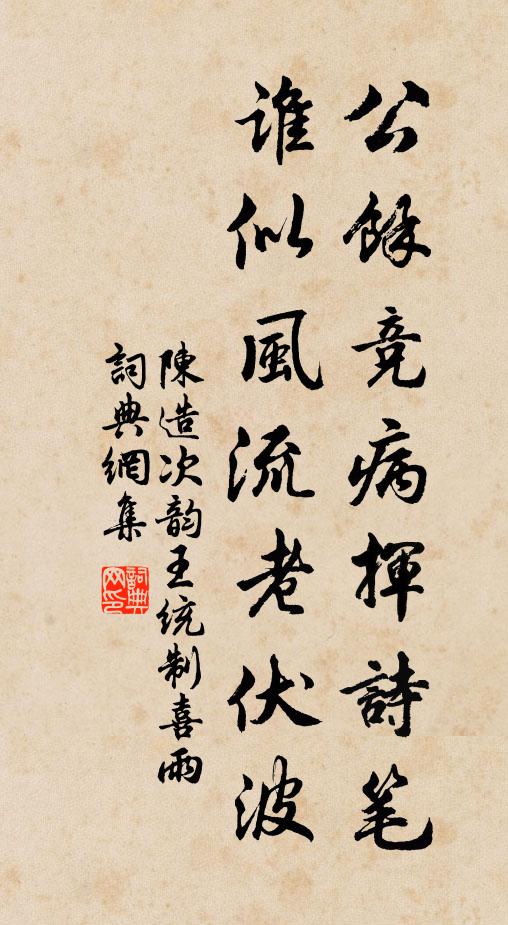 公餘竞病揮詩笔
誰似風流老伏波
陳造次韵王统制喜雨
詞典網集
詞典网印